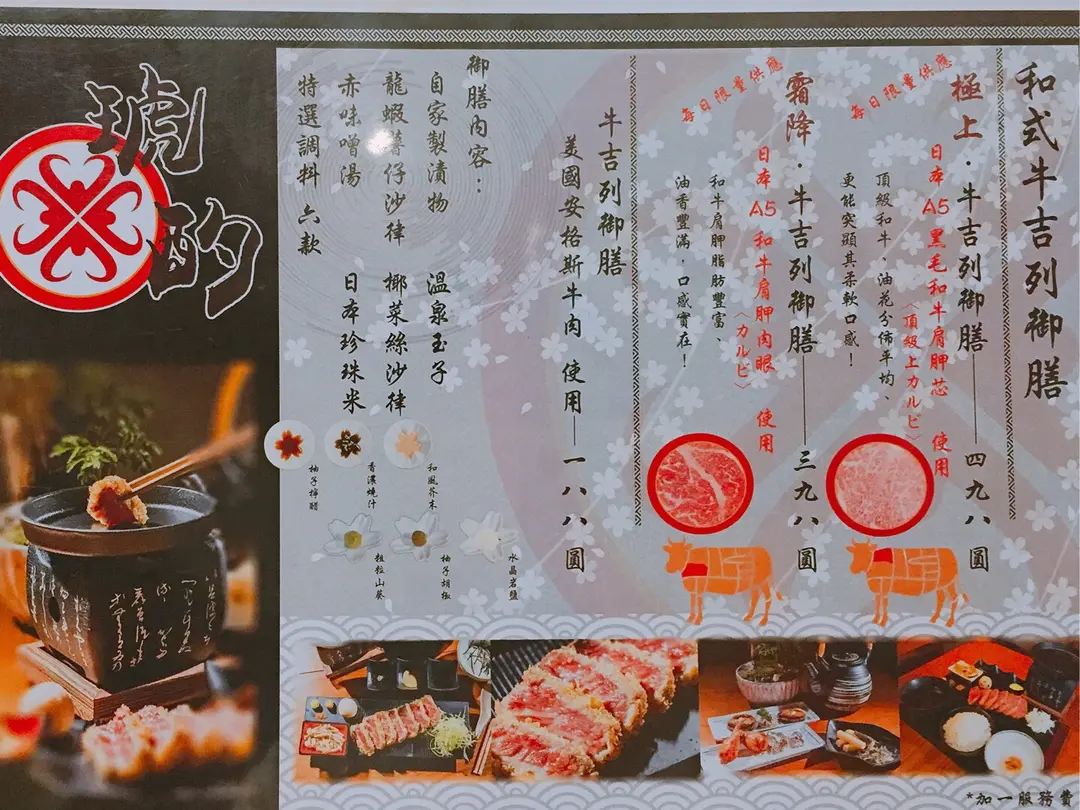 和式牛吉列御膳
極上・牛吉列御膳——四九八圓
每日限量供應
日本A5黑毛和牛肩胛芯 使用
〈頂級上カルビ〉
頂級和牛、油花分佈平均、
更能突顯其柔軟口感！
霜降・牛吉列御膳——三九八圓
每日限量供應
日本A5和牛肩胛肉眼 使用
〈カルビ〉
和牛肩胛脂肪豐富、
油香豐滿，口感實在！
牛吉列御膳
美國安格斯牛肉 使用——一八八圓
御膳內容：
自家製漬物 溫泉玉子
龍蝦薯仔沙律 椰菜絲沙律
赤味噌湯 日本珍珠米
特選調料 六款
和風芥末
香濃燒汁
柚子檸醋
水晶岩鹽
柚子胡椒
粗粒山葵
琥酌
*加一服務費